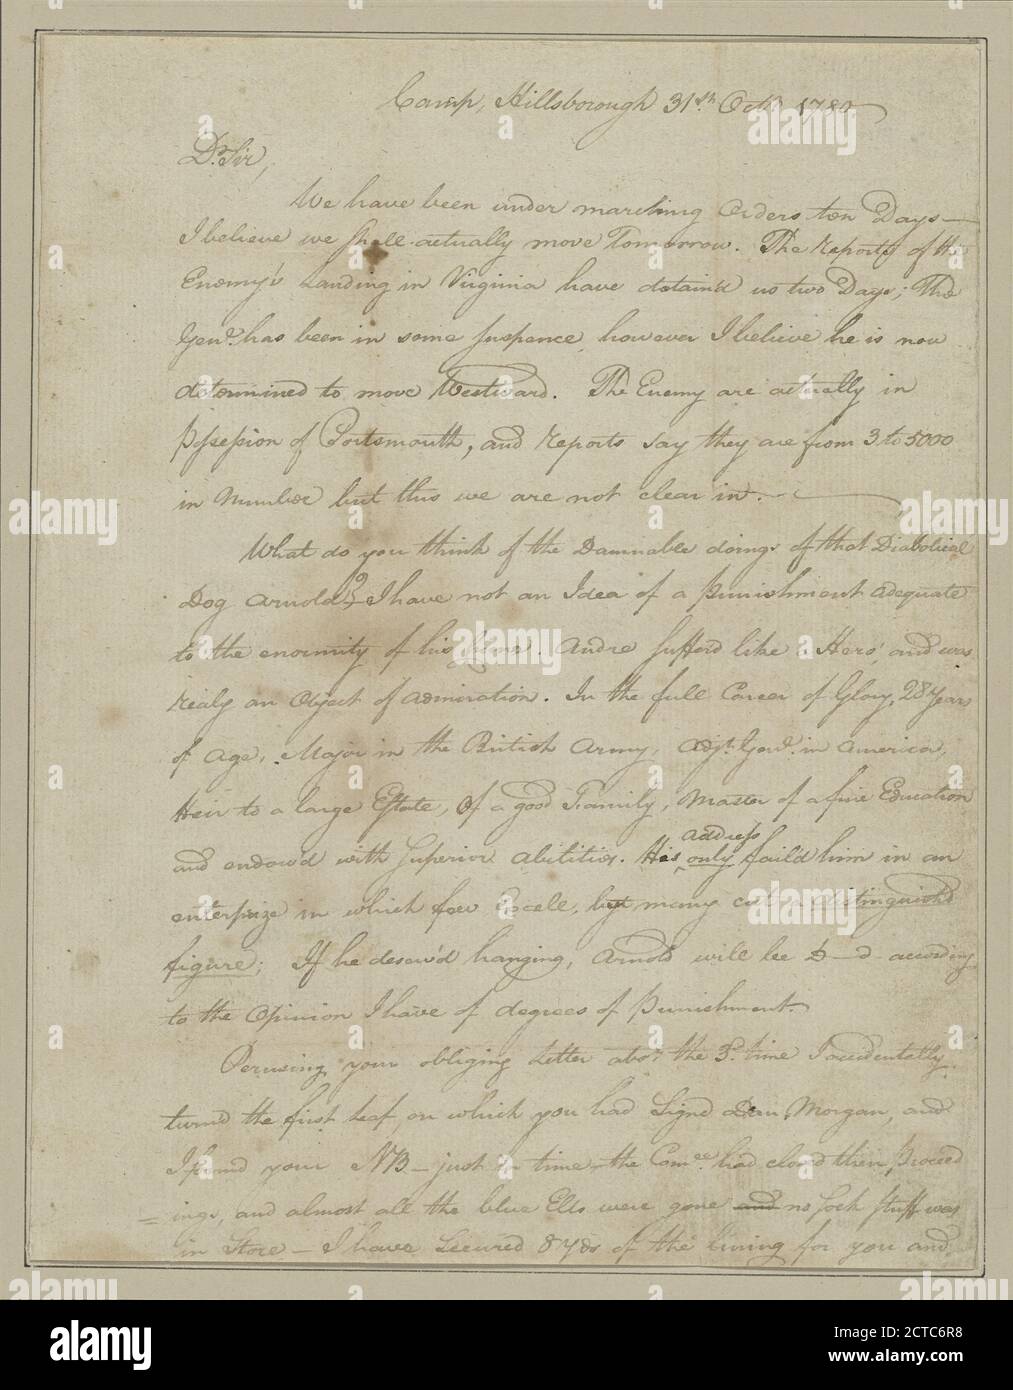 Camp, Hillsborough 31st. Octr. 1780
Dr. Sir,
We have been under marching Orders ten Days—
I believe we shall actually move Tomorrow. The Reports of the
Enemy's Landing in Virginia have detain'd us two Days; The
Genl. has been in some suspence, however I believe he is now
determined to move Westward. The Enemy are actually in
Possession of Portsmouth, and reports say they are from 3 to 5000
in Number but this we are not clear in.
What do you think of the Damnable doings of that Diabolical
Dog Arnold? I have not an Idea of a punishment adequate
to the enormity of his Crimes. Andre sufferd like a Hero, and was
realy an Object of admiration. In the full Career of Glory, 28 Years
of Age, Major in the British Army, Adjt. Genl. in America,
Heir to a large Estate, of a good Family, Master of a fine Education
and endow'd with superior abilities. His address only faild him in an
enterprize in which few Excell, but many cut a distinguishd
figure; If he deserv'd hanging, Arnold will be D—d according
to the Opinion I have of degrees of Punishment.
Perusing your obliging Letter abot. the 3d. time I accidentally
turnd the first Leaf, on which you had Signd Dan Morgan, and
I found your NB— just in time— the Comee. had closd their proceed
= ings, and almost all the blue Ells were gone and no such stuff was
in Store— I have Secured 8 Yds of the lining for you and
alamy
Image ID: 2CTC6R8
www.alamy.com